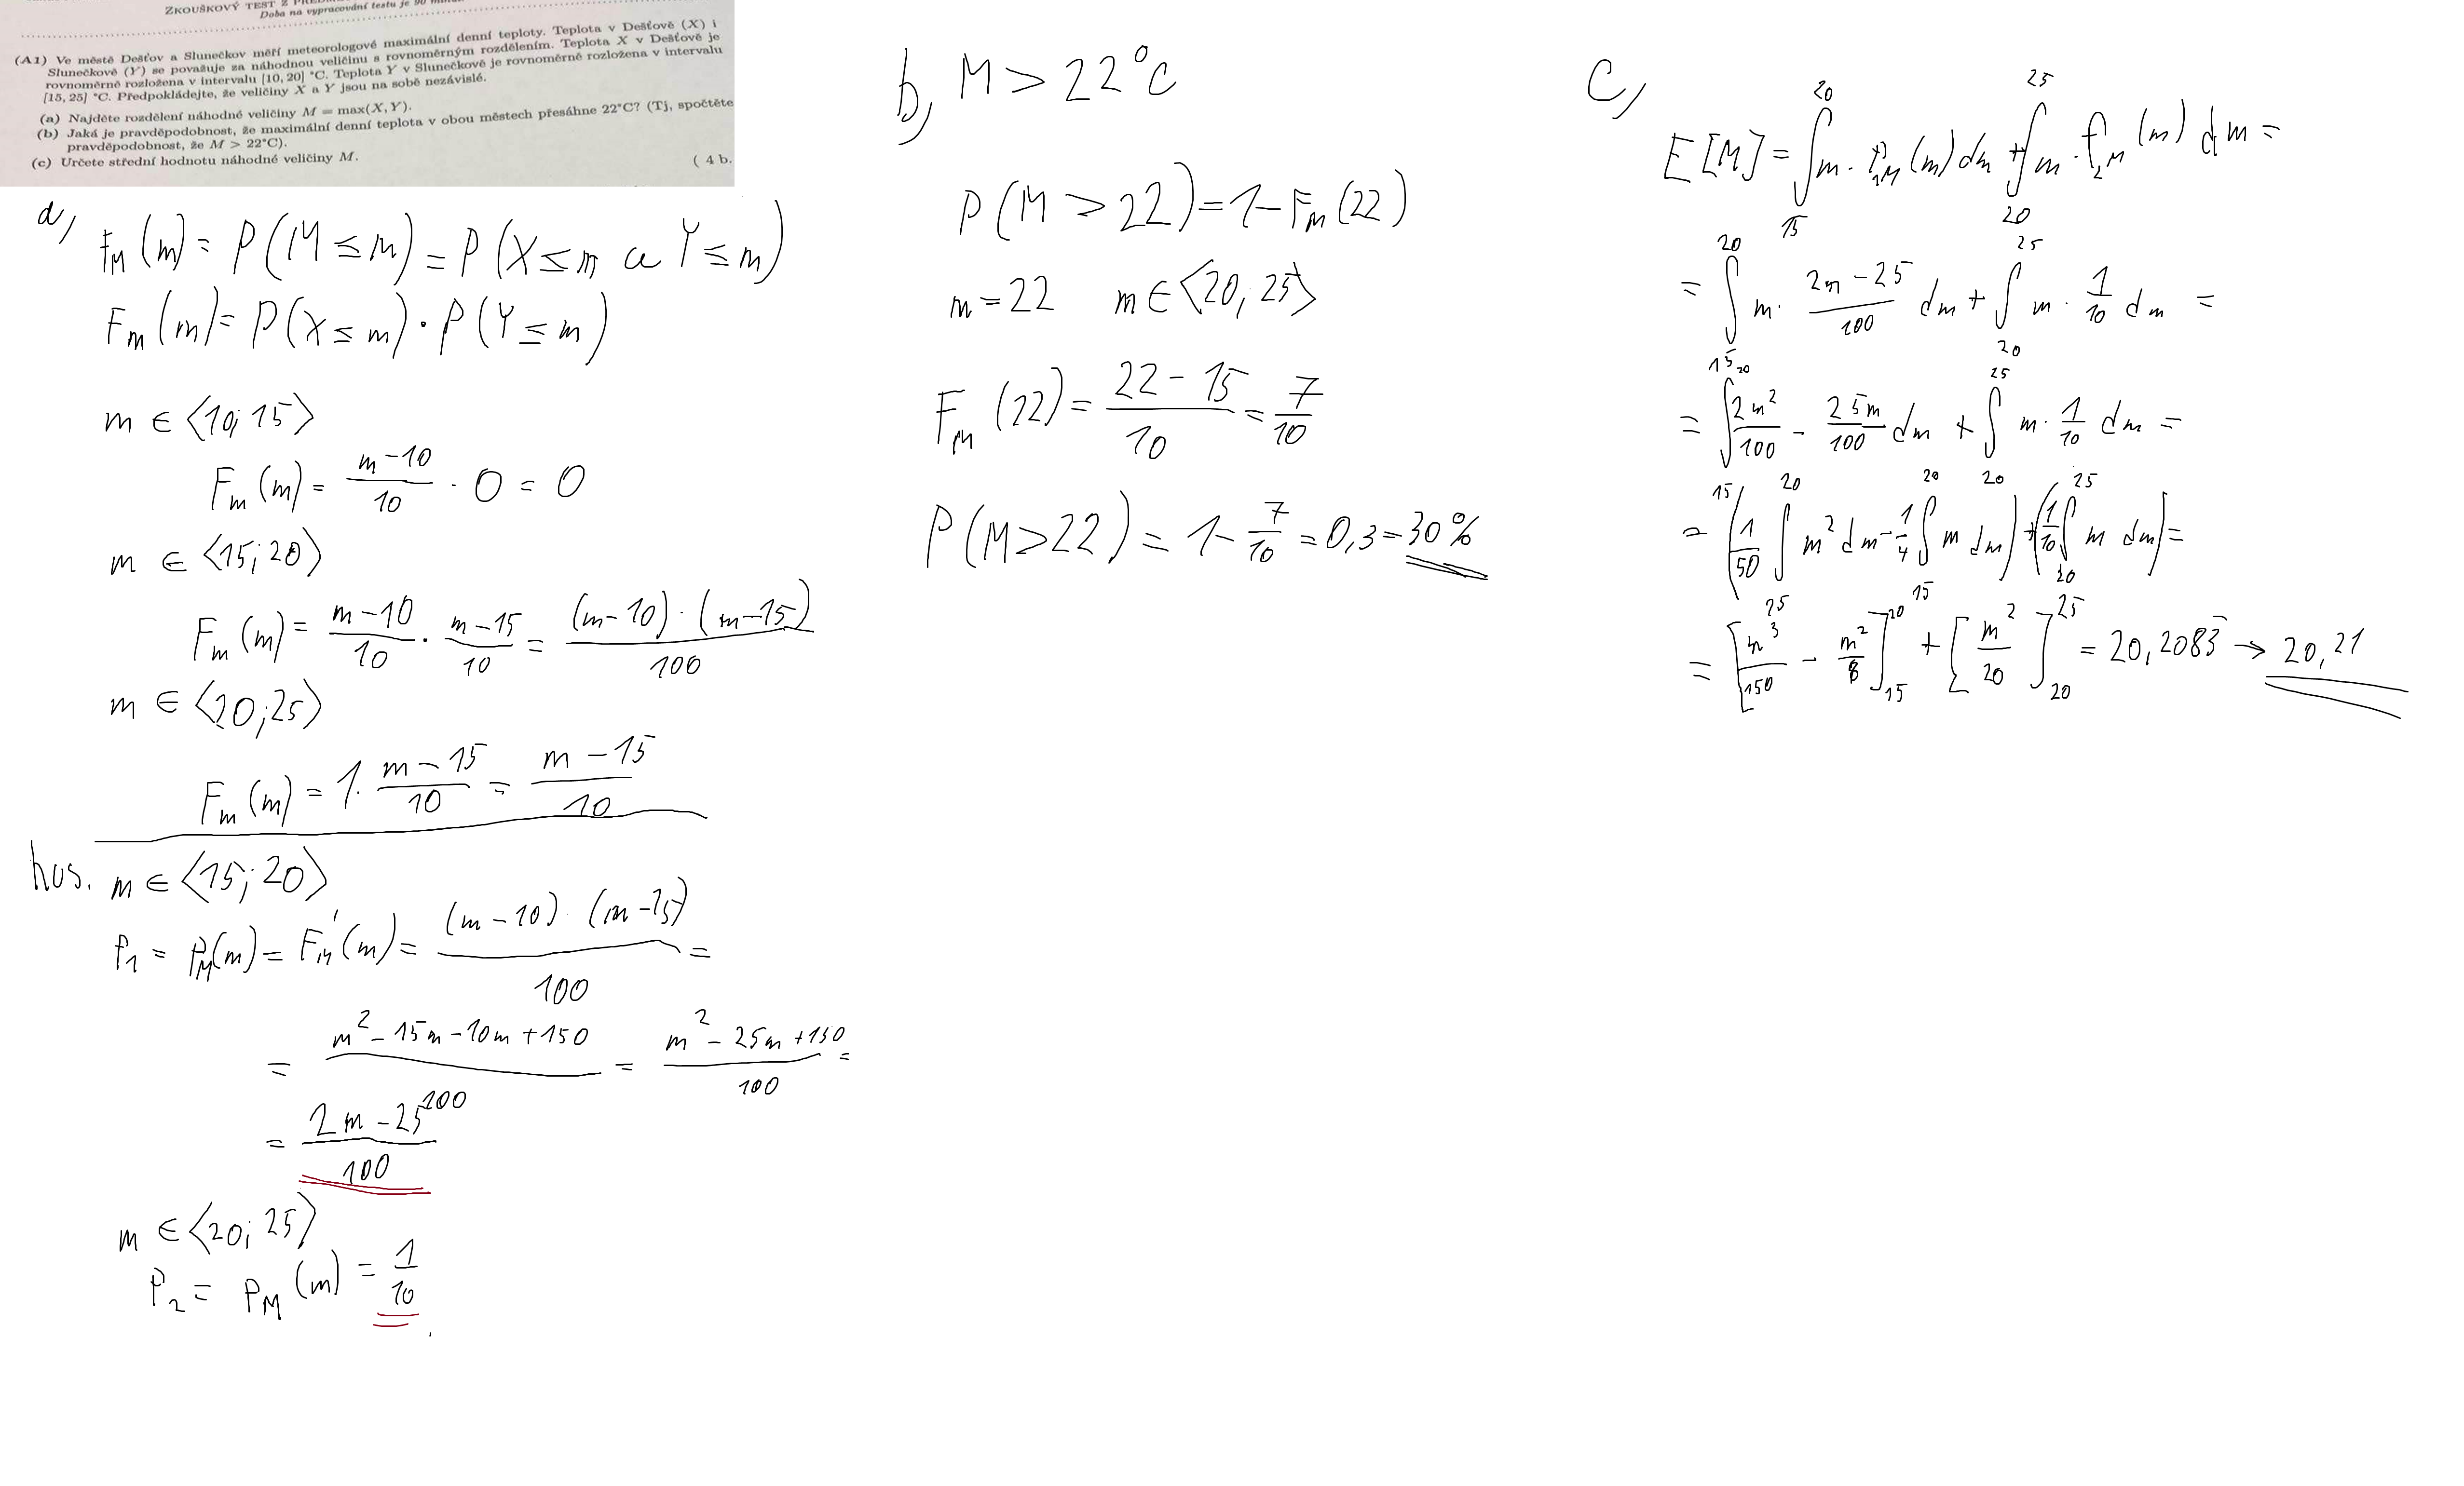 ZKOUŠKOVÝ TEST Z
Doba na vypracování testu je 90
(A1) Ve městě Dešťov a Slunečkov měří meteorologové maximální denní teploty. Teplota v Dešťově (X) i
Slunečkově (Y) se považuje za náhodnou veličinu s rovnoměrným rozdělením. Teplota X v Dešťově je
rovnoměrně rozložena v intervalu [10, 20] °C. Teplota Y v Slunečkově je rovnoměrně rozložena v intervalu
[15, 25] °C. Předpokládejte, že veličiny X a Y jsou na sobě nezávislé.
(a) Najděte rozdělení náhodné veličiny M = max(X, Y).
(b) Jaká je pravděpodobnost, že maximální denní teplota v obou městech přesáhne 22°C? (Tj, spočtěte
pravděpodobnost, že M > 22°C).
(c) Určete střední hodnotu náhodné veličiny M.
( 4 b.
a)
F_M(m) = P(M ≤ m) = P(X ≤ m a Y ≤ m)
F_m(m) = P(X ≤ m) · P(Y ≤ m)
m ∈ ⟨10; 15⟩
F_m(m) = (m-10)/10 · 0 = 0
m ∈ ⟨15; 20⟩
F_m(m) = (m-10)/10 · (m-15)/10 = (m-10)·(m-15)/100
m ∈ ⟨20; 25⟩
F_m(m) = 1 · (m-15)/10 = (m-15)/10
hus. m ∈ ⟨15; 20⟩
P_1 = P_M(m) = F_M'(m) = (m-10)·(m-15)/100 =
= (m²-15m-10m+150)/100 = (m²-25m+150)/100 =
= (2m-25)/100
m ∈ ⟨20; 25⟩
P_2 = P_M(m) = 1/10
b) M > 22°C
P(M > 22) = 1 - F_M(22)
m = 22 m ∈ ⟨20; 25⟩
F_M(22) = (22-15)/10 = 7/10
P(M > 22) = 1 - 7/10 = 0,3 = 30%
c)
E[M] = ∫_15^20 m · P_1M(m) dm + ∫_20^25 m · f_2M(m) dm =
= ∫_15^20 m · (2m-25)/100 dm + ∫_20^25 m · 1/10 dm =
= ∫_15^20 2m²/100 - 25m/100 dm + ∫_20^25 m · 1/10 dm =
= (1/50 ∫_15^20 m² dm - 1/4 ∫_15^20 m dm) + (1/10 ∫_20^25 m dm) =
= [m³/150 - m²/8]_15^20 + [m²/20]_20^25 = 20,2083 → 20,21